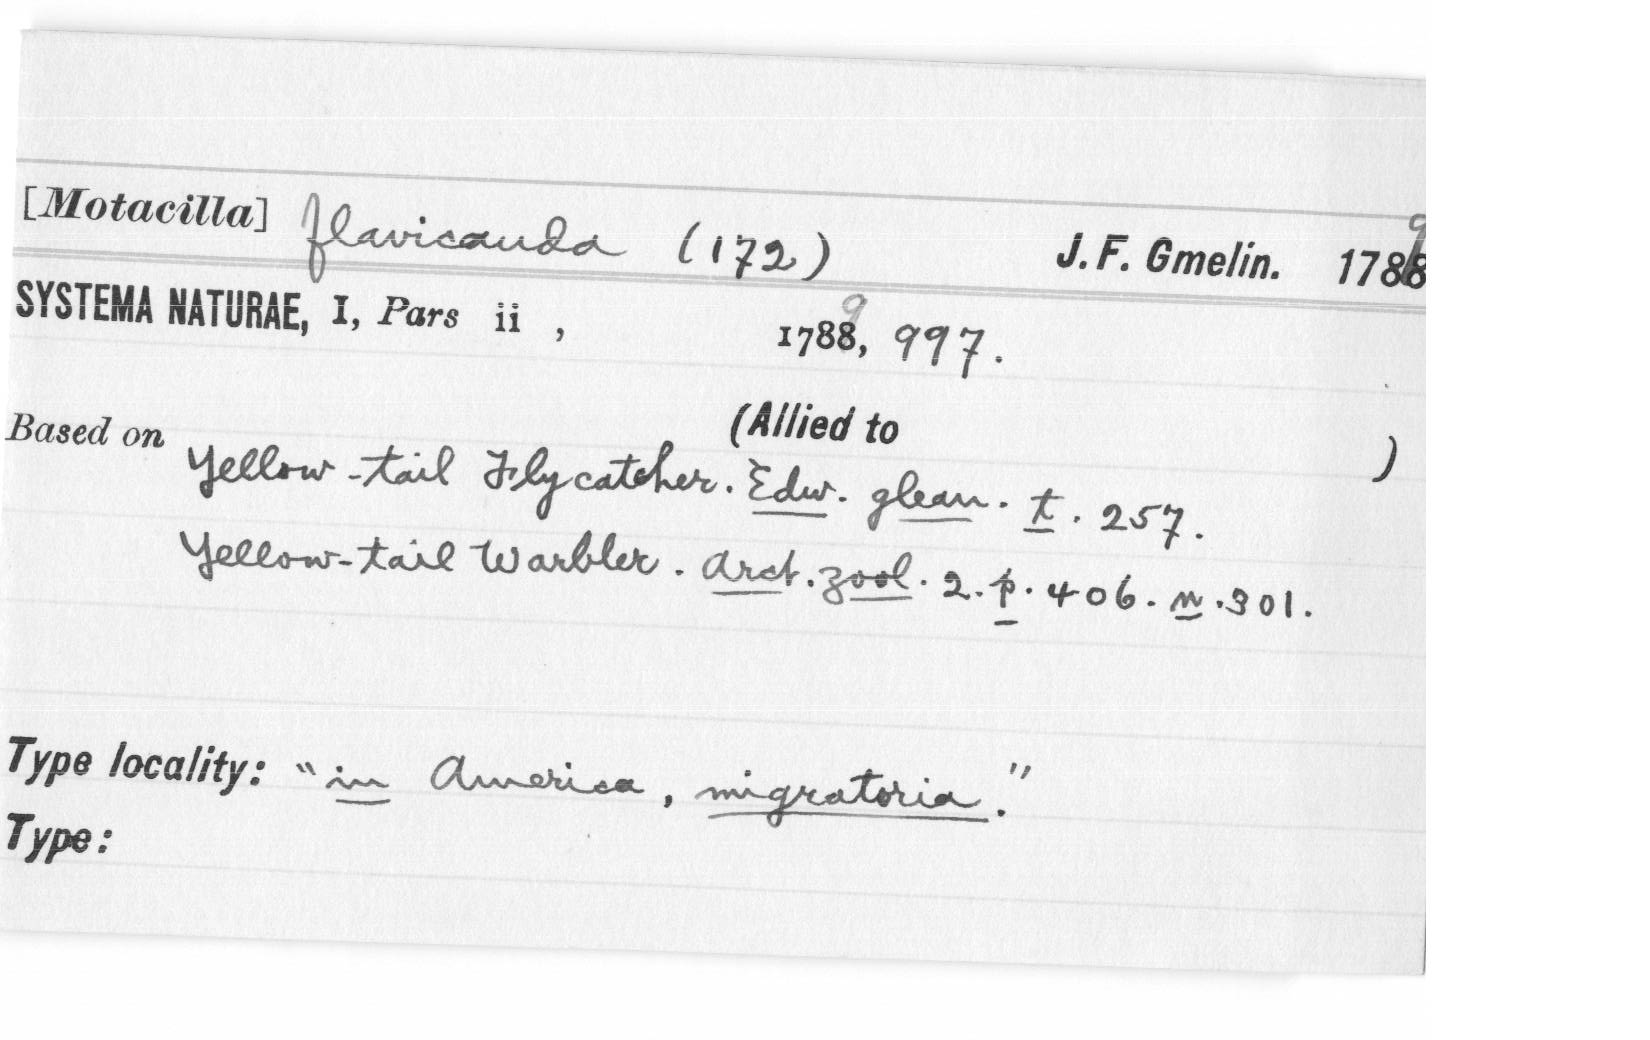 [Motacilla] flavicauda (172) J. F. Gmelin. 1788 9
SYSTEMA NATURAE, I, Pars ii , 1788 9, 997.
(Allied to )
Based on Yellow-tail Flycatcher. Edw. glean. t. 257.
Yellow-tail Warbler. Arct. zool. 2. p. 406. n. 301.
Type locality: "in America, migratoria."
Type: